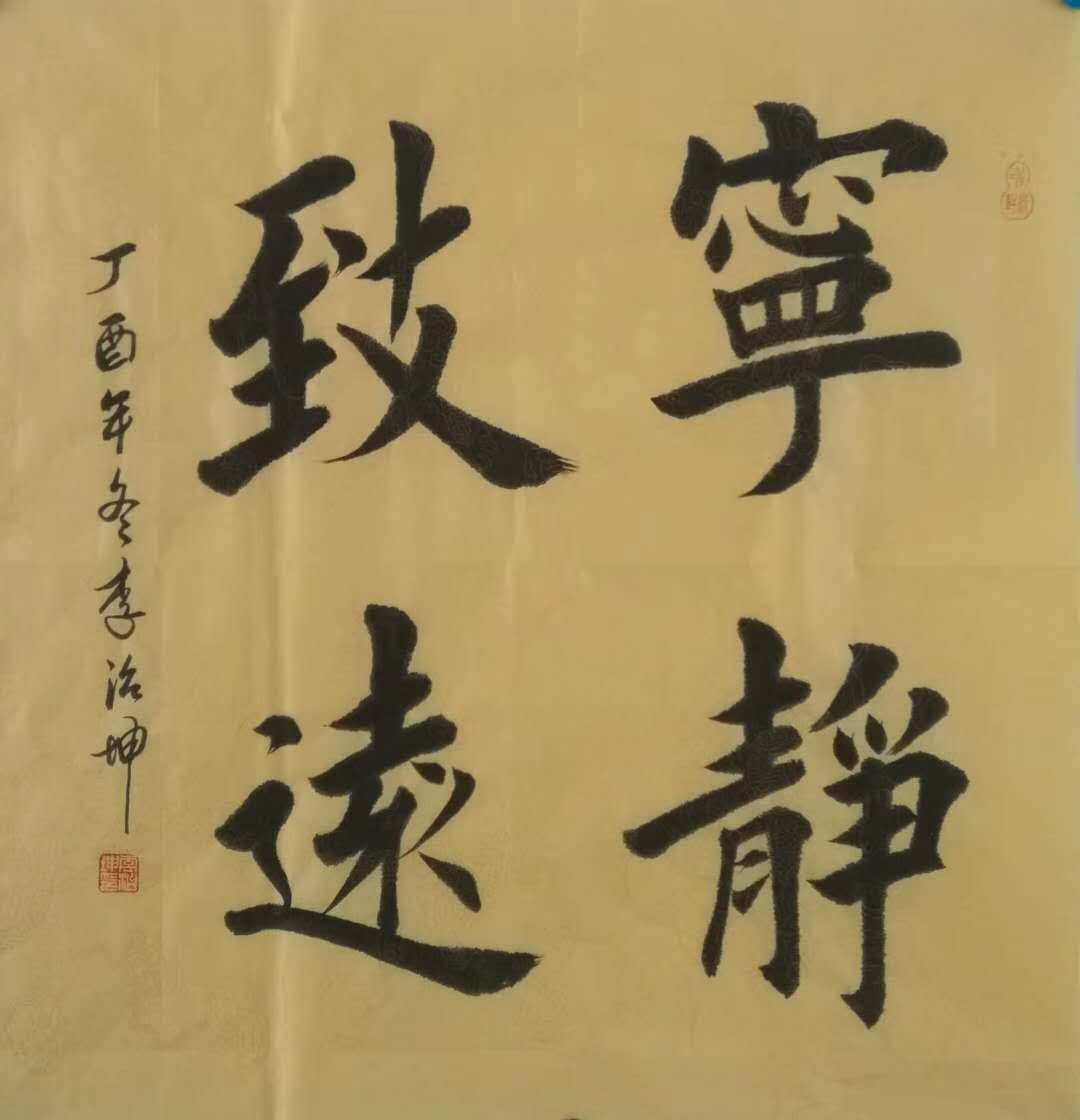 寧靜
致遠
丁酉年冬李治坤